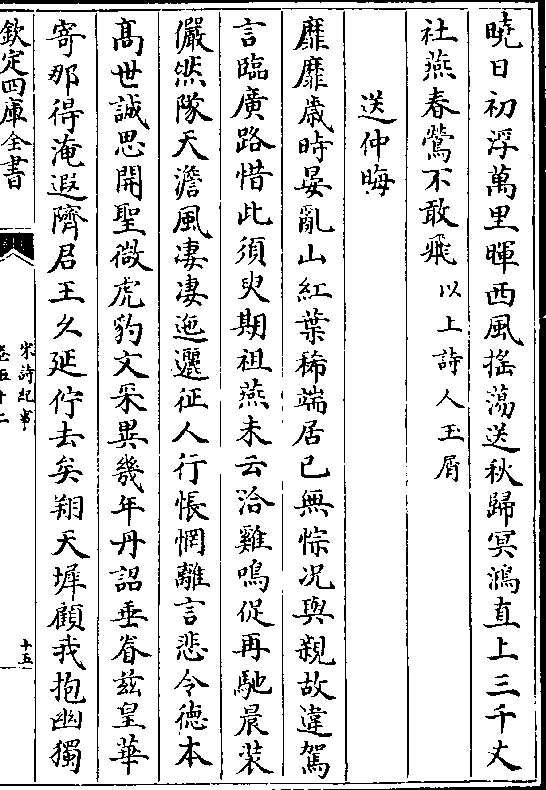 曉日初浮萬里暉西風揺蕩送秋歸冥鴻直上三千丈
社燕春鶯不敢飛以上詩人玉屑
送仲晦
靡靡歲時晏亂山紅葉稀端居已無悰况與親故違駕
言臨廣路惜此須臾期祖燕未云洽雞鳴促再馳晨装
儼然隊天澹風凄凄迤邐征人行悵惘離言悲令徳本
髙世誠思開聖微虎豹文采異幾年丹詔垂眷兹皇華
寄那得淹遐隮君王久延佇去矣翔天墀顧我抱幽獨
欽定四庫全書
宋詩紀事
卷五十二
十五